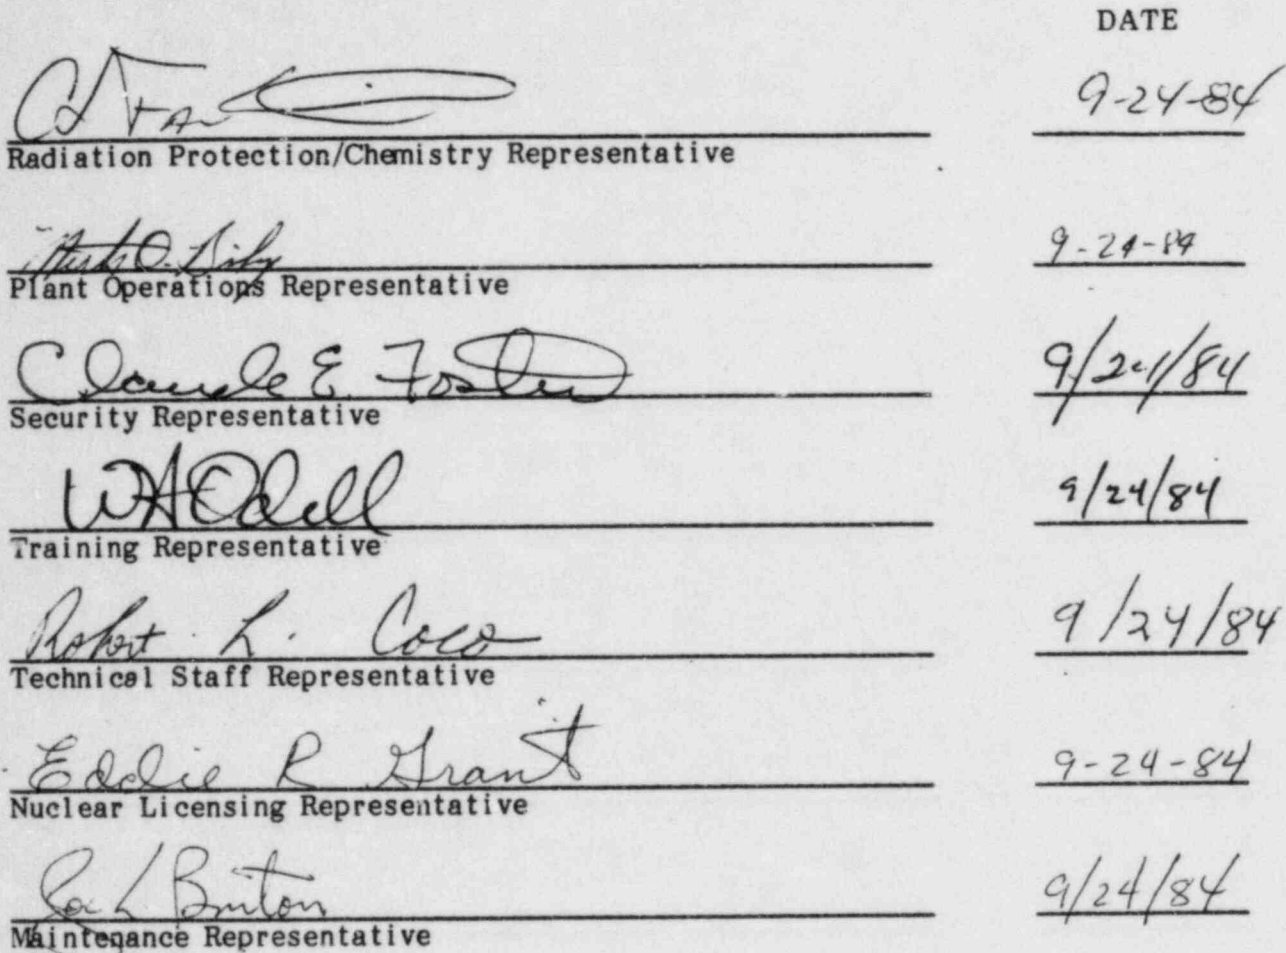 DATE
9-24-84
Radiation Protection/Chemistry Representative
9-24-84
Plant Operations Representative
Claude E. Foster 9/24/84
Security Representative
W A Odell 9/24/84
Training Representative
Robert L. Coco 9/24/84
Technical Staff Representative
Eddie R Grant 9-24-84
Nuclear Licensing Representative
9/24/84
Maintenance Representative